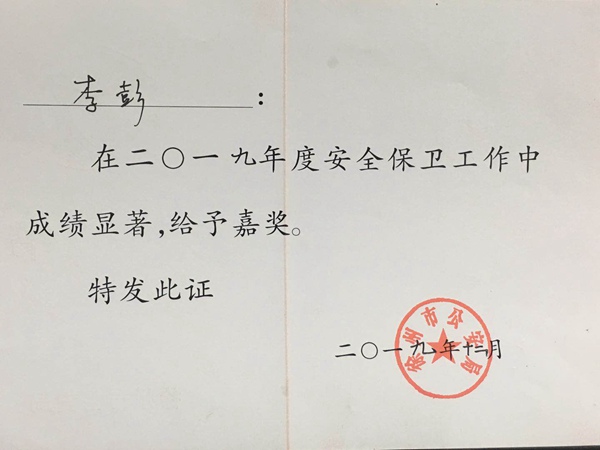 李彭：
在二〇一九年度安全保卫工作中
成绩显著，给予嘉奖。
特发此证
宿州市公安局
二〇一九年十二月